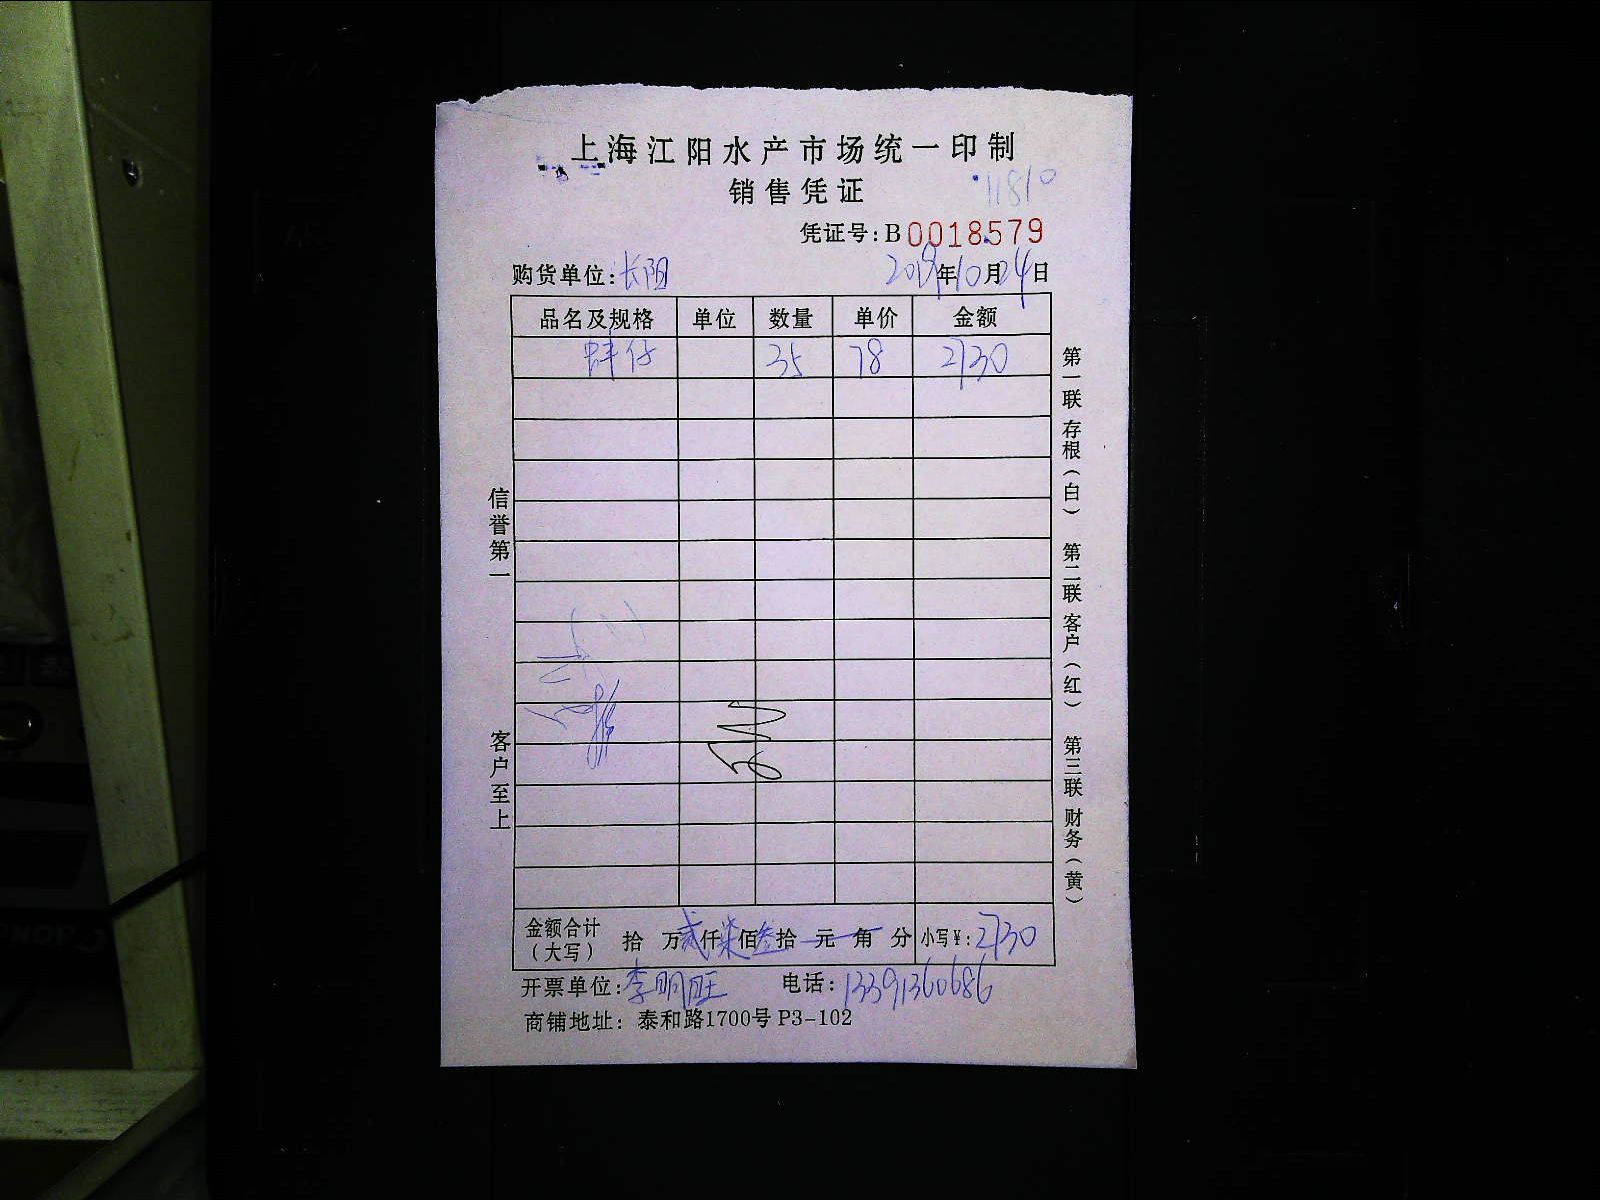 上海江阳水产市场统一印制
销售凭证
11810
凭证号:B0018579
购货单位:长阳 2019年10月24日
品名及规格 单位 数量 单价 金额
蚌仔 35 78 2730
信誉第一
客户至上
第一联 存根(白) 第二联 客户(红) 第三联 财务(黄)
金额合计(大写) 拾 万贰仟柒佰叁拾 元 角 分 小写¥:2730
开票单位:李明旺 电话:13391360686
商铺地址: 泰和路1700号 P3-102